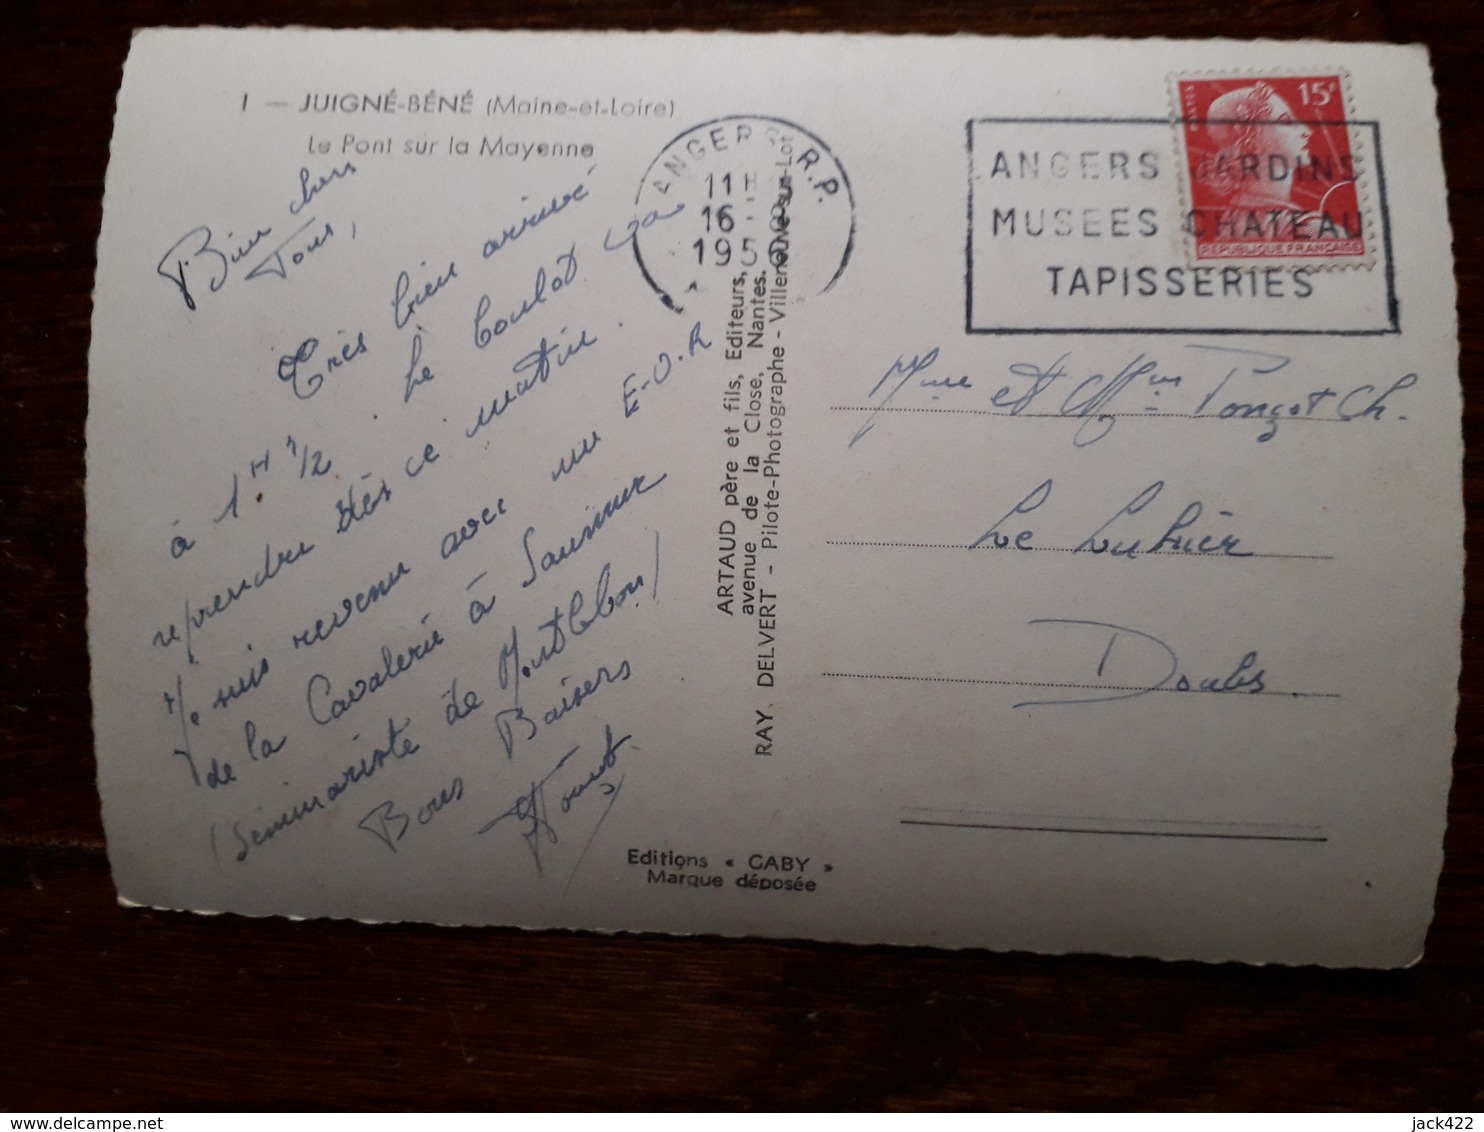 1 — JUIGNÉ-BÉNÉ (Maine-et-Loire)
Le Pont sur la Mayenne
Bien chers
Tous,
Très bien arrivé
à 1H 1/2. Le boulot va
reprendre dès ce matin.
Je suis revenu avec un E.O.R
de la Cavalerie à Saumur
(Séminariste de Montlebon)
Bons Baisers
ANGERS R.P.
11H
16
195
ANGERS JARDINS
MUSEES CHATEAU
TAPISSERIES
POSTES
15F
REPUBLIQUE FRANÇAISE
ARTAUD père et fils, Editeurs,
avenue de la Close, Nantes.
RAY. DELVERT - Pilote-Photographe - Villeneuve-sur-Lot
Mme et Mr Pongot Ch.
Le Luhier
Doubs.
Editions « GABY »
Marque déposée
delcampe.net
jack422